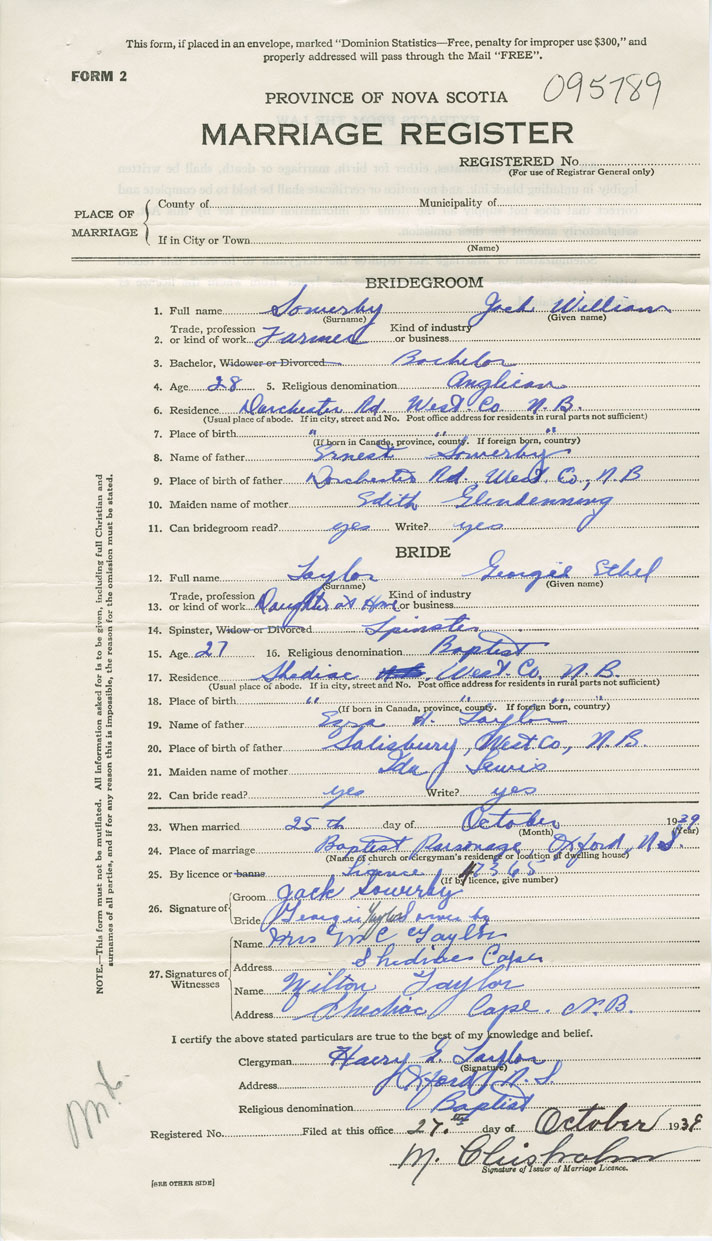 This form, if placed in an envelope, marked “Dominion Statistics—Free, penalty for improper use $300,” and
properly addressed will pass through the Mail “FREE”.
FORM 2
095789
PROVINCE OF NOVA SCOTIA
MARRIAGE REGISTER
REGISTERED No.
(For use of Registrar General only)
PLACE OF MARRIAGE
County of Municipality of
If in City or Town
(Name)
BRIDEGROOM
1. Full name Sowerby Jack William
(Surname) (Given name)
Trade, profession Kind of industry
2. or kind of work Farmer or business
3. Bachelor, Widower or Divorced Bachelor
4. Age 28 5. Religious denomination Anglican
6. Residence Dorchester Rd. West. Co N.B.
(Usual place of abode. If in city, street and No. Post office address for residents in rural parts not sufficient)
7. Place of birth " " "
(If born in Canada, province, county. If foreign born, country)
8. Name of father Ernest Sowerby
9. Place of birth of father Dorchester Rd., West. Co., N.B
10. Maiden name of mother Edith Glendenning
11. Can bridegroom read? yes Write? yes
BRIDE
12. Full name Taylor Georgie Ethel
(Surname) (Given name)
Trade, profession Kind of industry
13. or kind of work Daughter at Home or business
14. Spinster, Widow or Divorced Spinster
15. Age 27 16. Religious denomination Baptist
17. Residence Shediac West. Co. N.B.
(Usual place of abode. If in city, street and No. Post office address for residents in rural parts not sufficient)
18. Place of birth " " " "
(If born in Canada, province, county. If foreign born, country)
19. Name of father Ezra H. Taylor
20. Place of birth of father Salisbury, West. Co., N.B.
21. Maiden name of mother Ida J Lewis
22. Can bride read? yes Write? yes
23. When married 25th day of October 1939
(Month) (Year)
24. Place of marriage Baptist Parsonage, Oxford, N.S.
(Name of church or clergyman's residence or location of dwelling house)
25. By licence or banns Licence 17365
(If by licence, give number)
26. Signature of
Groom Jack Sowerby
Bride Georgie Taylor Sowerby
27. Signatures of Witnesses
Name Mrs M C Taylor
Address Shediac Cape
Name Wilton Taylor
Address Shediac Cape. N.B.
I certify the above stated particulars are true to the best of my knowledge and belief.
Clergyman Harry E. Taylor
(Signature)
Address Oxford, N.S.
Religious denomination Baptist
Registered No. Filed at this office 27th day of October 1939
M. Chisholm
Signature of Issuer of Marriage Licence.
[SEE OTHER SIDE]
NOTE.—This form must not be mutilated. All information asked for is to be given, including full Christian and
surnames of all parties, and if for any reason this is impossible, the reason for the omission must be stated.